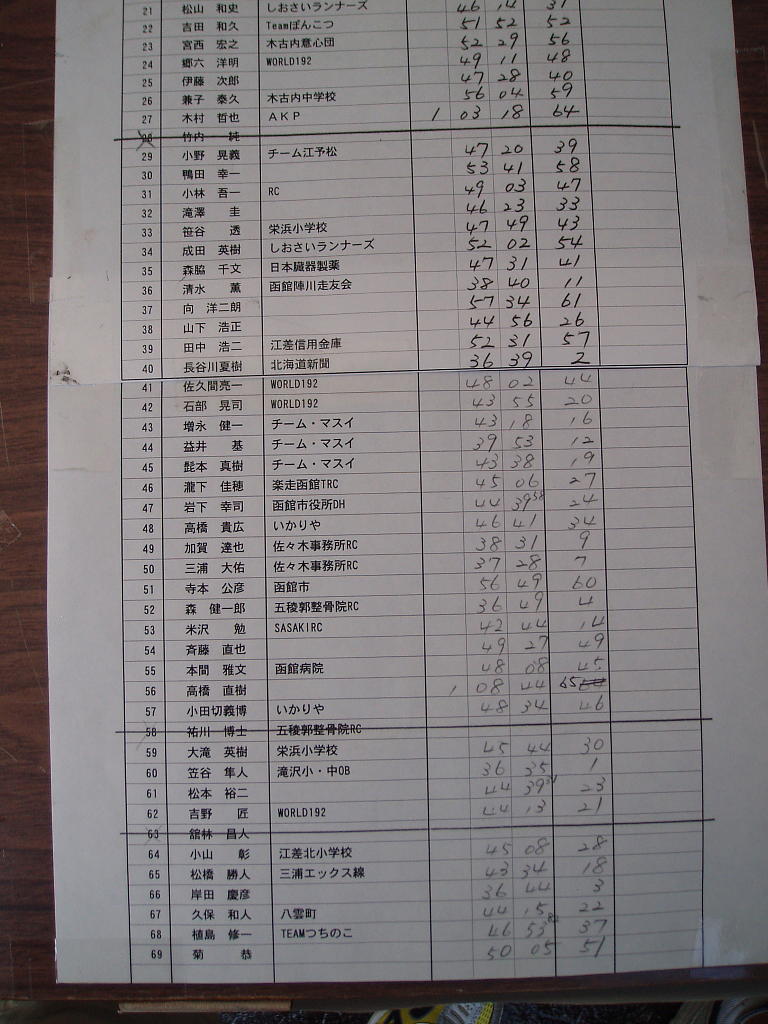 21 松山 和史 しおさいランナーズ 46 14 31
22 吉田 和久 Teamぽんこつ 51 52 52
23 宮西 宏之 木古内意心団 52 29 56
24 郷六 洋明 WORLD192 49 11 48
25 伊藤 次郎 47 28 40
26 兼子 泰久 木古内中学校 56 04 59
27 木村 哲也 AKP 1 03 18 64
28 竹内 純
29 小野 晃義 チーム江予松 47 20 39
30 鴨田 幸一 53 41 58
31 小林 吾一 RC 49 03 47
32 滝澤 圭 46 23 33
33 笹谷 透 栄浜小学校 47 49 43
34 成田 英樹 しおさいランナーズ 52 02 54
35 森脇 千文 日本臓器製薬 47 31 41
36 清水 薫 函館陣川走友会 38 40 11
37 向 洋二朗 57 34 61
38 山下 浩正 44 56 26
39 田中 浩二 江差信用金庫 52 31 57
40 長谷川夏樹 北海道新聞 36 39 2
41 佐久間亮一 WORLD192 48 02 44
42 石部 晃司 WORLD192 43 55 20
43 増永 健一 チーム・マスイ 43 18 16
44 益井 基 チーム・マスイ 39 53 12
45 髭本 真樹 チーム・マスイ 43 38 19
46 瀧下 佳穂 楽走函館TRC 45 06 27
47 岩下 幸司 函館市役所DH 44 39 58 24
48 高橋 貴広 いかりや 46 41 34
49 加賀 達也 佐々木事務所RC 38 31 9
50 三浦 大佑 佐々木事務所RC 37 28 7
51 寺本 公彦 函館市 56 49 60
52 森 健一郎 五稜郭整骨院RC 36 49 4
53 米沢 勉 SASAKIRC 42 44 14
54 斉藤 直也 49 27 49
55 本間 雅文 函館病院 48 08 45
56 高橋 直樹 1 08 44 65
57 小田切義博 いかりや 48 34 46
58 祐川 博士 五稜郭整骨院RC
59 大滝 英樹 栄浜小学校 45 44 30
60 笠谷 隼人 滝沢小・中OB 36 35 1
61 松本 裕二 44 39 23
62 吉野 匠 WORLD192 44 13 21
63 舘林 昌人
64 小山 彰 江差北小学校 45 08 28
65 松橋 勝人 三浦エックス線 43 34 18
66 岸田 慶彦 36 44 3
67 久保 和人 八雲町 44 15 22
68 植島 修一 TEAMつちのこ 46 53 37
69 菊 恭 50 05 51